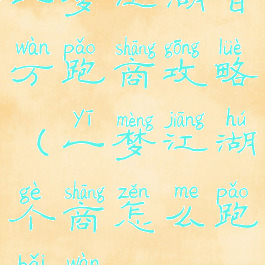 wàn pǎo shāng gōng lüè
万跑商攻略
yī mèng jiāng hú
(一梦江湖
gè shāng zěn me pǎo
个商怎么跑
bǎi wàn